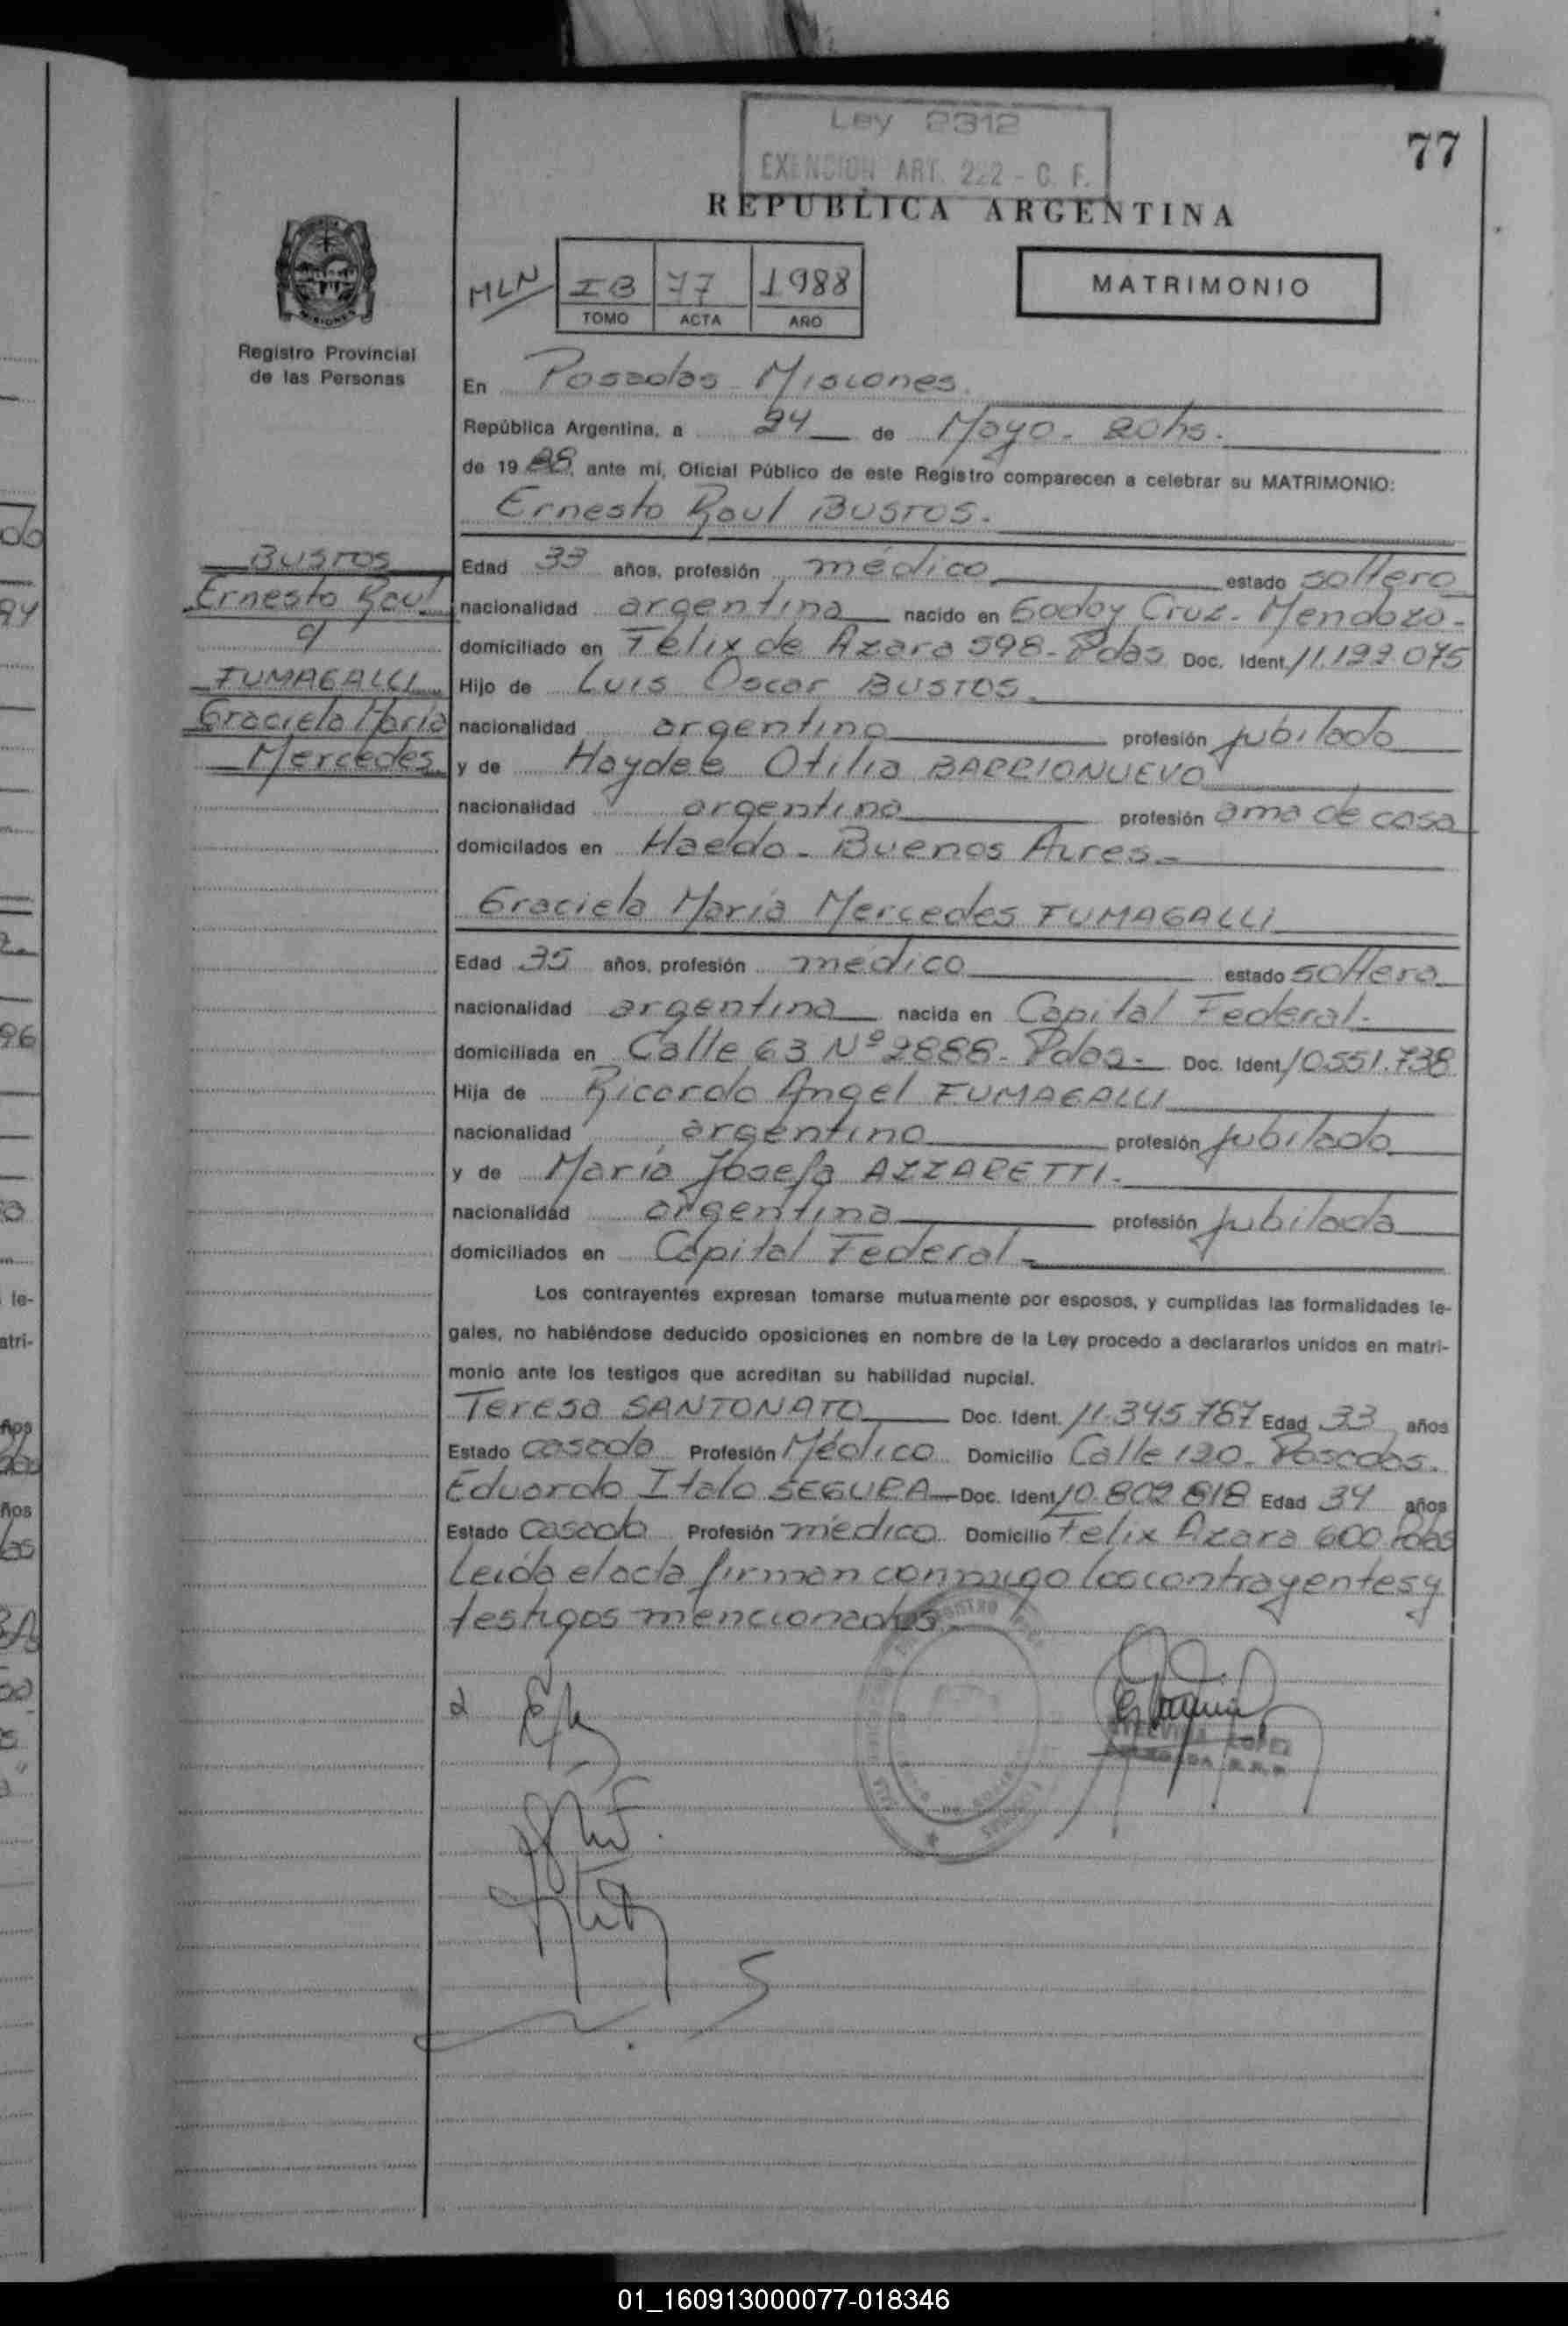 Ley 2312
EXENCION ART. 222 - C. F.
77
REPUBLICA ARGENTINA
MLN
IB 77 1988
TOMO ACTA AÑO
MATRIMONIO
Registro Provincial
de las Personas
En Posadas Misiones.
República Argentina, a 24 de Mayo - 20hs.
de 1988 ante mí, Oficial Público de este Registro comparecen a celebrar su MATRIMONIO:
Ernesto Raul BUSTOS.
BUSTOS
Ernesto Raul
y
FUMAGALLI
Graciela María
Mercedes
Edad 33 años, profesión médico estado soltero
nacionalidad argentina nacido en Godoy Cruz - Mendoza -
domiciliado en Félix de Azara 598 - Pdas Doc. Ident. 11.192.075
Hijo de Luis Oscar BUSTOS
nacionalidad argentina profesión jubilado
y de Haydeé Otilia BARRIONUEVO
nacionalidad argentina profesión ama de casa
domicilados en Haedo - Buenos Aires -
Graciela María Mercedes FUMAGALLI
Edad 35 años, profesión médico estado soltera
nacionalidad argentina nacida en Capital Federal -
domiciliada en Calle 63 Nº 2888 - Pdas - Doc. Ident. 10.551.738
Hija de Ricardo Angel FUMAGALLI
nacionalidad argentino profesión jubilado
y de María Josefa AZZARETTI -
nacionalidad argentina profesión jubilada
domiciliados en Capital Federal -
Los contrayentes expresan tomarse mutuamente por esposos, y cumplidas las formalidades le-
gales, no habiéndose deducido oposiciones en nombre de la Ley procedo a declararlos unidos en matri-
monio ante los testigos que acreditan su habilidad nupcial.
Teresa SANTONATO Doc. Ident. 11.345.767 Edad 33 años
Estado casada Profesión Médico Domicilio Calle 120 - Posadas.
Eduardo Italo SEGURA Doc. Ident. 10.802.818 Edad 34 años
Estado Casado Profesión médico Domicilio Felix Azara 600 Pdas
Leída el acta firman conmigo los contrayentes y
testigos mencionados
LOPEZ
01_160913000077-018346